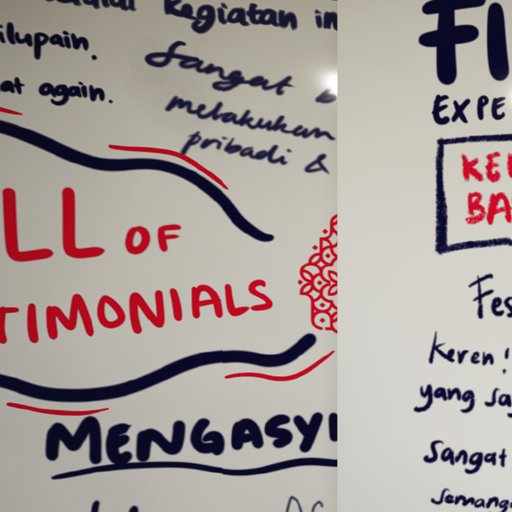 Kegiatan in
ilupain.
at again.
Sangat b
melakukan
pribadi &
LL OF
TIMONIALS
MENGASYI
FI
EXPE
KE
BA
Fes
Keren!
yang sa
Sangat
Semanga